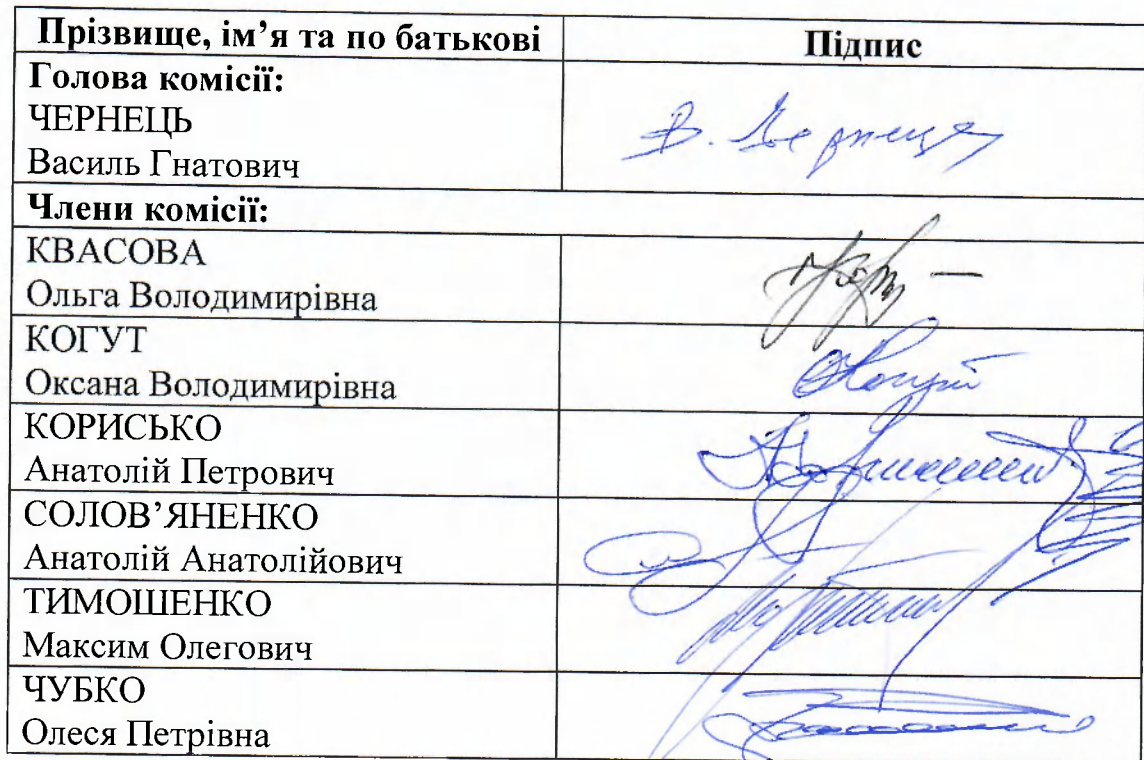 Прізвище, ім’я та по батькові Підпис
Голова комісії:
ЧЕРНЕЦЬ
Василь Гнатович
В. Чернець
Члени комісії:
КВАСОВА
Ольга Володимирівна
КОГУТ
Оксана Володимирівна
КОРИСЬКО
Анатолій Петрович
СОЛОВ’ЯНЕНКО
Анатолій Анатолійович
ТИМОШЕНКО
Максим Олегович
ЧУБКО
Олеся Петрівна